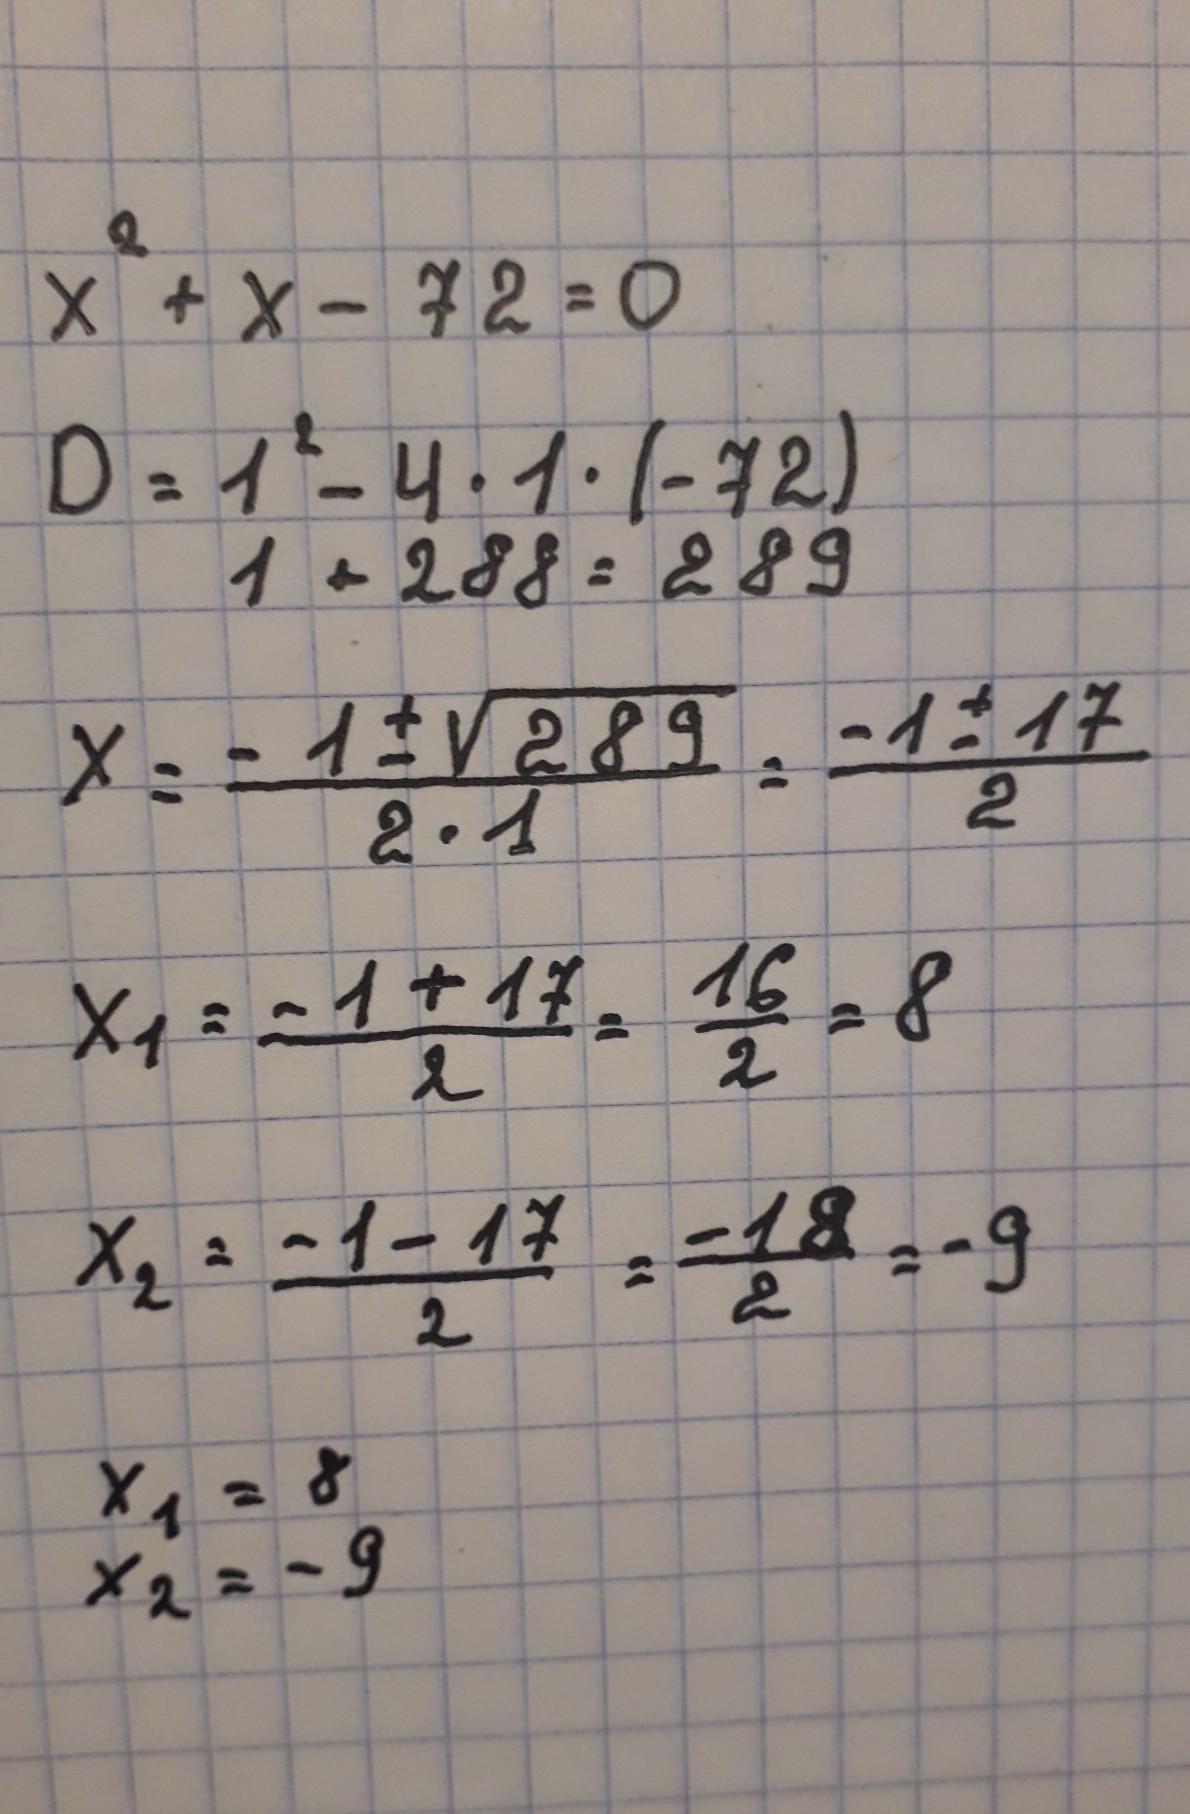 x² + x - 72 = 0
D = 1² - 4 · 1 · (-72)
1 + 288 = 289
x = (-1 ± √289)/(2 · 1) = (-1 ± 17)/2
x₁ = (-1 + 17)/2 = 16/2 = 8
x₂ = (-1 - 17)/2 = -18/2 = -9
x₁ = 8
x₂ = -9